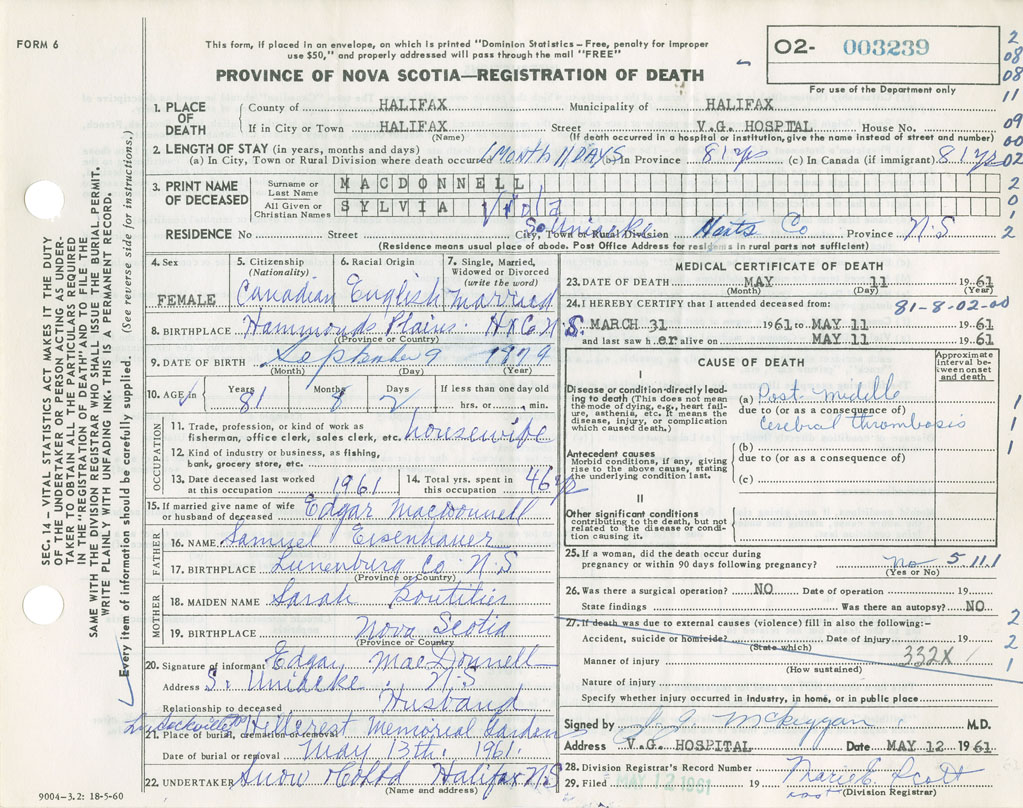 FORM 6
This form, if placed in an envelope, on which is printed "Dominion Statistics – Free, penalty for improper
use $50," and properly addressed will pass through the mail "FREE"
PROVINCE OF NOVA SCOTIA—REGISTRATION OF DEATH
02- 003239
For use of the Department only
2
08
08
11
09
00
02
2
0
1
2
1. PLACE OF DEATH
County of HALIFAX Municipality of HALIFAX
If in City or Town HALIFAX Street V.G. HOSPITAL House No.
(Name) (If death occurred in a hospital or institution, give the name instead of street and number)
2. LENGTH OF STAY (in years, months and days)
(a) In City, Town or Rural Division where death occurred 1 MONTH 11 DAYS (b) In Province 81 yrs (c) In Canada (if immigrant) 81 yrs
3. PRINT NAME OF DECEASED
Surname or Last Name MACDONNELL
All Given or Christian Names SYLVIA Viola
RESIDENCE No Street City, Town or Rural Division So Uniacke Hants Co Province N.S
(Residence means usual place of abode. Post Office Address for residents in rural parts not sufficient)
4. Sex
FEMALE
5. Citizenship
(Nationality)
Canadian
6. Racial Origin
English
7. Single, Married,
Widowed or Divorced
(write the word)
Married
8. BIRTHPLACE Hammonds Plains. Hx Co. N.S.
(Province or Country)
9. DATE OF BIRTH September 9 1879
(Month) (Day) (Year)
10. AGE Years 81 Months 8 Days 2 If less than one day old
hrs. or min.
OCCUPATION
11. Trade, profession, or kind of work as
fisherman, office clerk, sales clerk, etc. housewife
12. Kind of industry or business, as fishing,
bank, grocery store, etc.
13. Date deceased last worked
at this occupation 1961
14. Total yrs. spent in
this occupation 46 yrs
15. If married give name of wife
or husband of deceased Edgar MacDonnell
FATHER
16. NAME Samuel Eisenhauer
17. BIRTHPLACE Lunenburg Co. N.S
(Province or Country)
MOTHER
18. MAIDEN NAME Sarah Boutilier
19. BIRTHPLACE Nova Scotia
(Province or Country)
20. Signature of informant Edgar MacDonnell
Address S. Uniacke N.S
Relationship to deceased Husband
Sackville
21. Place of burial, cremation or removal Hillcrest Memorial Gardens
Date of burial or removal May 13th. 1961.
22. UNDERTAKER Snow & Co Ltd Halifax N.S
(Name and address)
9004-3.2: 18-5-60
MEDICAL CERTIFICATE OF DEATH
23. DATE OF DEATH MAY 11 1961
(Month) (Day) (Year)
24. I HEREBY CERTIFY that I attended deceased from: 81-8-02-00
MARCH 31 1961 to MAY 11 1961
and last saw her alive on MAY 11 1961
CAUSE OF DEATH
Approximate
interval be-
tween onset
and death
I
Disease or condition directly lead-
ing to death (This does not mean
the mode of dying, e.g., heart fail-
ure, asthenia, etc. It means the
disease, injury, or complication
which caused death.)
(a) Post. Middle
due to (or as a consequence of)
cerebral thrombosis
Antecedent causes
Morbid conditions, if any, giving
rise to the above cause, stating
the underlying condition last.
(b)
due to (or as a consequence of)
(c)
1
1
1
II
Other significant conditions
contributing to the death, but not
related to the disease or condi-
tion causing it.
25. If a woman, did the death occur during
pregnancy or within 90 days following pregnancy? No 5.11.1
(Yes or No)
26. Was there a surgical operation? NO Date of operation 19
State findings Was there an autopsy? NO
27. If death was due to external causes (violence) fill in also the following:-
Accident, suicide or homicide? Date of injury 19
(State which) 332X
Manner of injury
(How sustained)
Nature of injury
Specify whether injury occurred in Industry, in home, or in public place
2
2
1
Signed by McKiggan M.D.
Address V.G. HOSPITAL Date MAY 12 1961
28. Division Registrar's Record Number
29. Filed MAY 12 1961 Marie E. Scott
(Division Registrar)
SEC. 14 – VITAL STATISTICS ACT MAKES IT THE DUTY
OF THE UNDERTAKER OR PERSON ACTING AS UNDER-
TAKER TO OBTAIN ALL THE PARTICULARS REQUIRED
IN THE "REGISTRATION OF DEATH" AND TO FILE THE
SAME WITH THE DIVISION REGISTRAR WHO SHALL ISSUE THE BURIAL PERMIT.
WRITE PLAINLY WITH UNFADING INK. THIS IS A PERMANENT RECORD.
Every item of information should be carefully supplied. (See reverse side for instructions.)